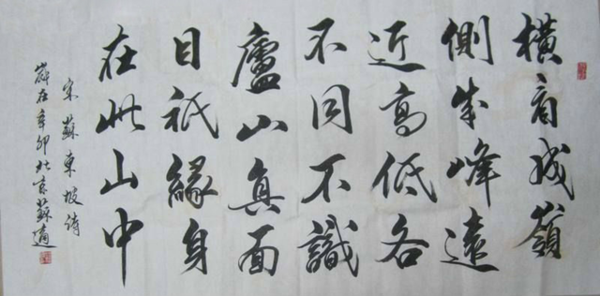 橫看成嶺
側成峰遠
近高低各
不同不識
廬山真面
目祇緣身
在此山中
宋蘇東坡詩
歲在辛卯北京蘇適